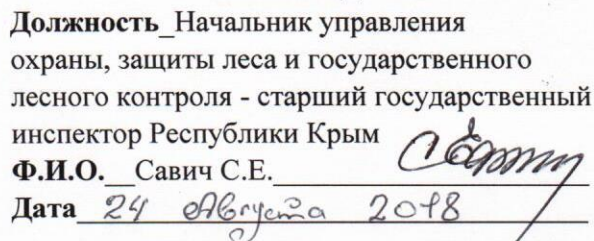 Должность_Начальник управления
охраны, защиты леса и государственного
лесного контроля - старший государственный
инспектор Республики Крым
Ф.И.О.__Савич С.Е.
Дата 24 Августа 2018